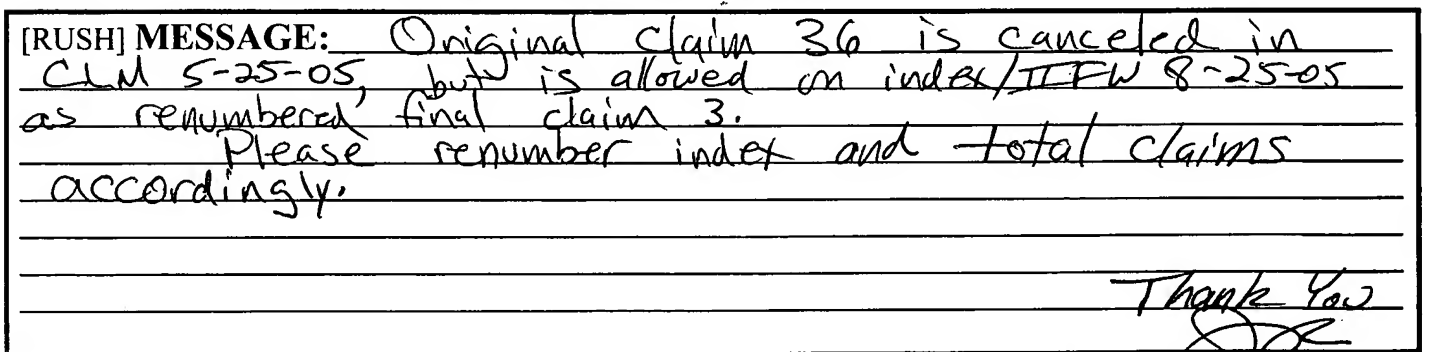 [RUSH] MESSAGE: Original Claim 36 is canceled in
CLM 5-25-05, but is allowed on index/IIFW 8-25-05
as renumbered final claim 3.
Please renumber index and total claims
accordingly.
Thank You